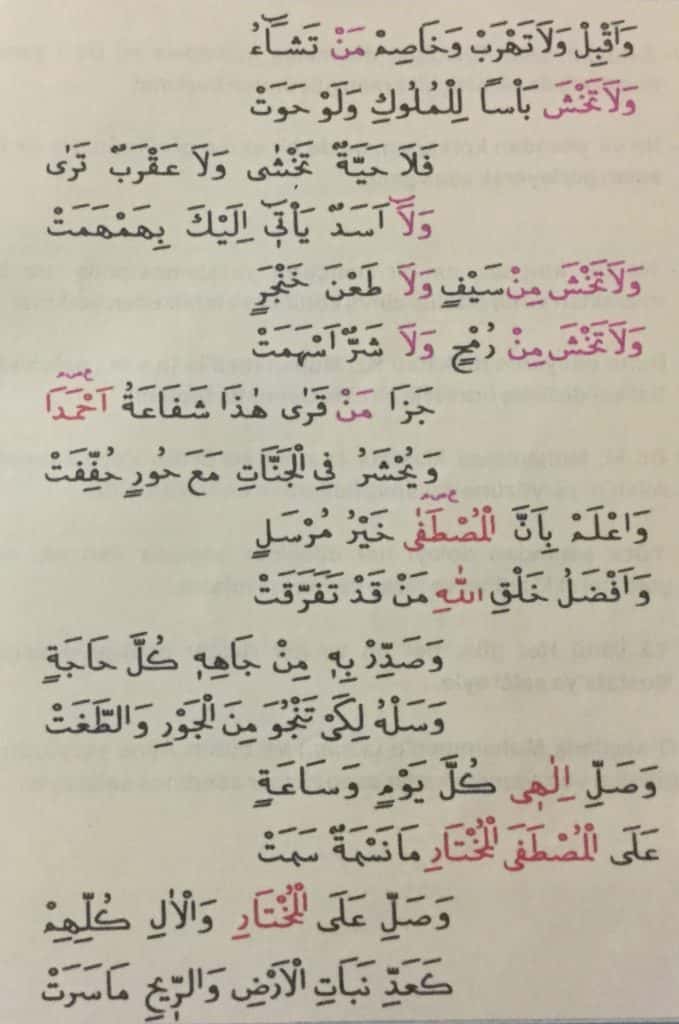 وَاَقْبِلْ وَلَا تَهْرَبْ وَخَاصِمْ مَنْ تَشَٓاءُ
وَلَا تَخْشَ بَاْساً لِلْمُلُوكِ وَلَوْ حوتْ
فَلَا حَيَّةٌ تَخْشٰى وَلَا عَقْرَبٌ تَرٰى
وَلَٓا اَسَدٌ يَاْتٖٓي اِلَيْكَ بِهَمْهَمَتْ
وَلَا تَخْشَ مِنْ سَيْفٍ وَلَا طَعْنَ خَنْجَرٍ
وَلَا تَخْشَ مِنْ رُمْحٍ وَلَا شَرٌّ اَسْهَمَتْ
جَزَا مَنْ قَرٰى هٰذَا شَفَاعَةُ اَحْمَدَا
وَيُحْشَرُ فِي الْجَنَّاتِ مَعَ حُورٍ حُفِّفَتْ
وَاعْلَمْ بِاَنَّ الْمُصْطَفٰى خَيْرُ مُرْسَلٍ
وَاَفْضَلُ خَلْقِ اللّٰهِ مَنْ قَدْ تَفَرَّقَتْ
وَصَدِّرْ بِهٖ مِنْ جَاهِهٖ كُلَّ حَاجَةٍ
وَسَلْهُ لِكَيْ تَنْجُوَ مِنَ الْجَوْرِ وَالطَّغَتْ
وَصَلِّ اِلٰهٖي كُلَّ يَوْمٍ وَسَاعَةٍ
عَلَى الْمُصْطَفَى الْمُخْتَارِ مَا نَسْمَةٌ سَمَتْ
وَصَلِّ عَلَى الْمُخْتَارِ وَالْاٰلِ كُلِّهِمْ
كَعَدِّ نَبَاتِ الْاَرْضِ وَالرّٖيحِ مَا سَرَتْ